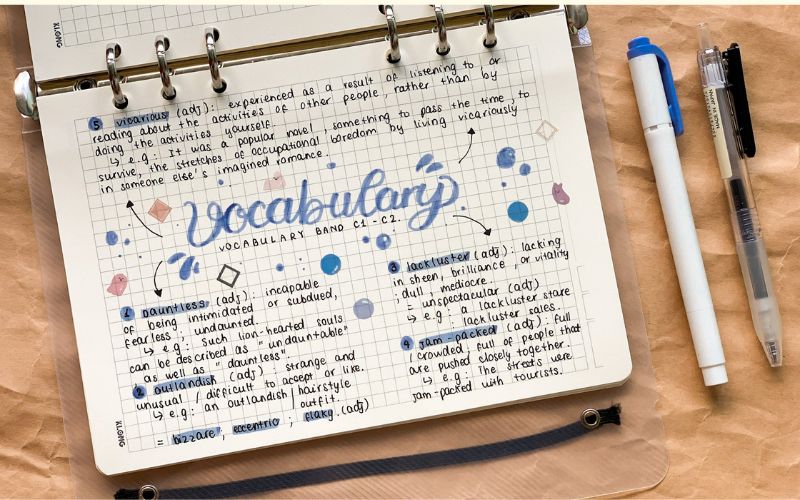 KLONG
5 vicarious (adj): experienced as a result of listening to or
reading about the activities of other people, rather than by
doing the activities yourself.
↳ e.g: It was a popular novel, something to pass the time, to
survive, the stretches of occupational boredom by living vicariously
in someone else's imagined romance.
Vocabulary
VOCABULARY BAND C1 - C2.
1 dauntless (adj): incapable
of being intimidated or subdued,
fearless; undaunted.
↳ e.g: Such lion-hearted souls
can be described as "undauntable"
as well as "dauntless"
2 outlandish (adj): strange and
unusual / difficult to accept or like.
↳ e.g: an outlandish / hairstyle
outfit.
= bizzare, eccentric; flaky (adj)
3 lackluster (adj): lacking
in sheen, brilliance, or vitality
: dull, mediocre.
= unspectacular (adj)
↳ e.g: a lackluster stare
: lackluster sales.
4 jam-packed (adj): full
/ crowded, full of people that
are pushed closely together.
↳ e.g: The streets were
jam-packed with tourists.
KLONG